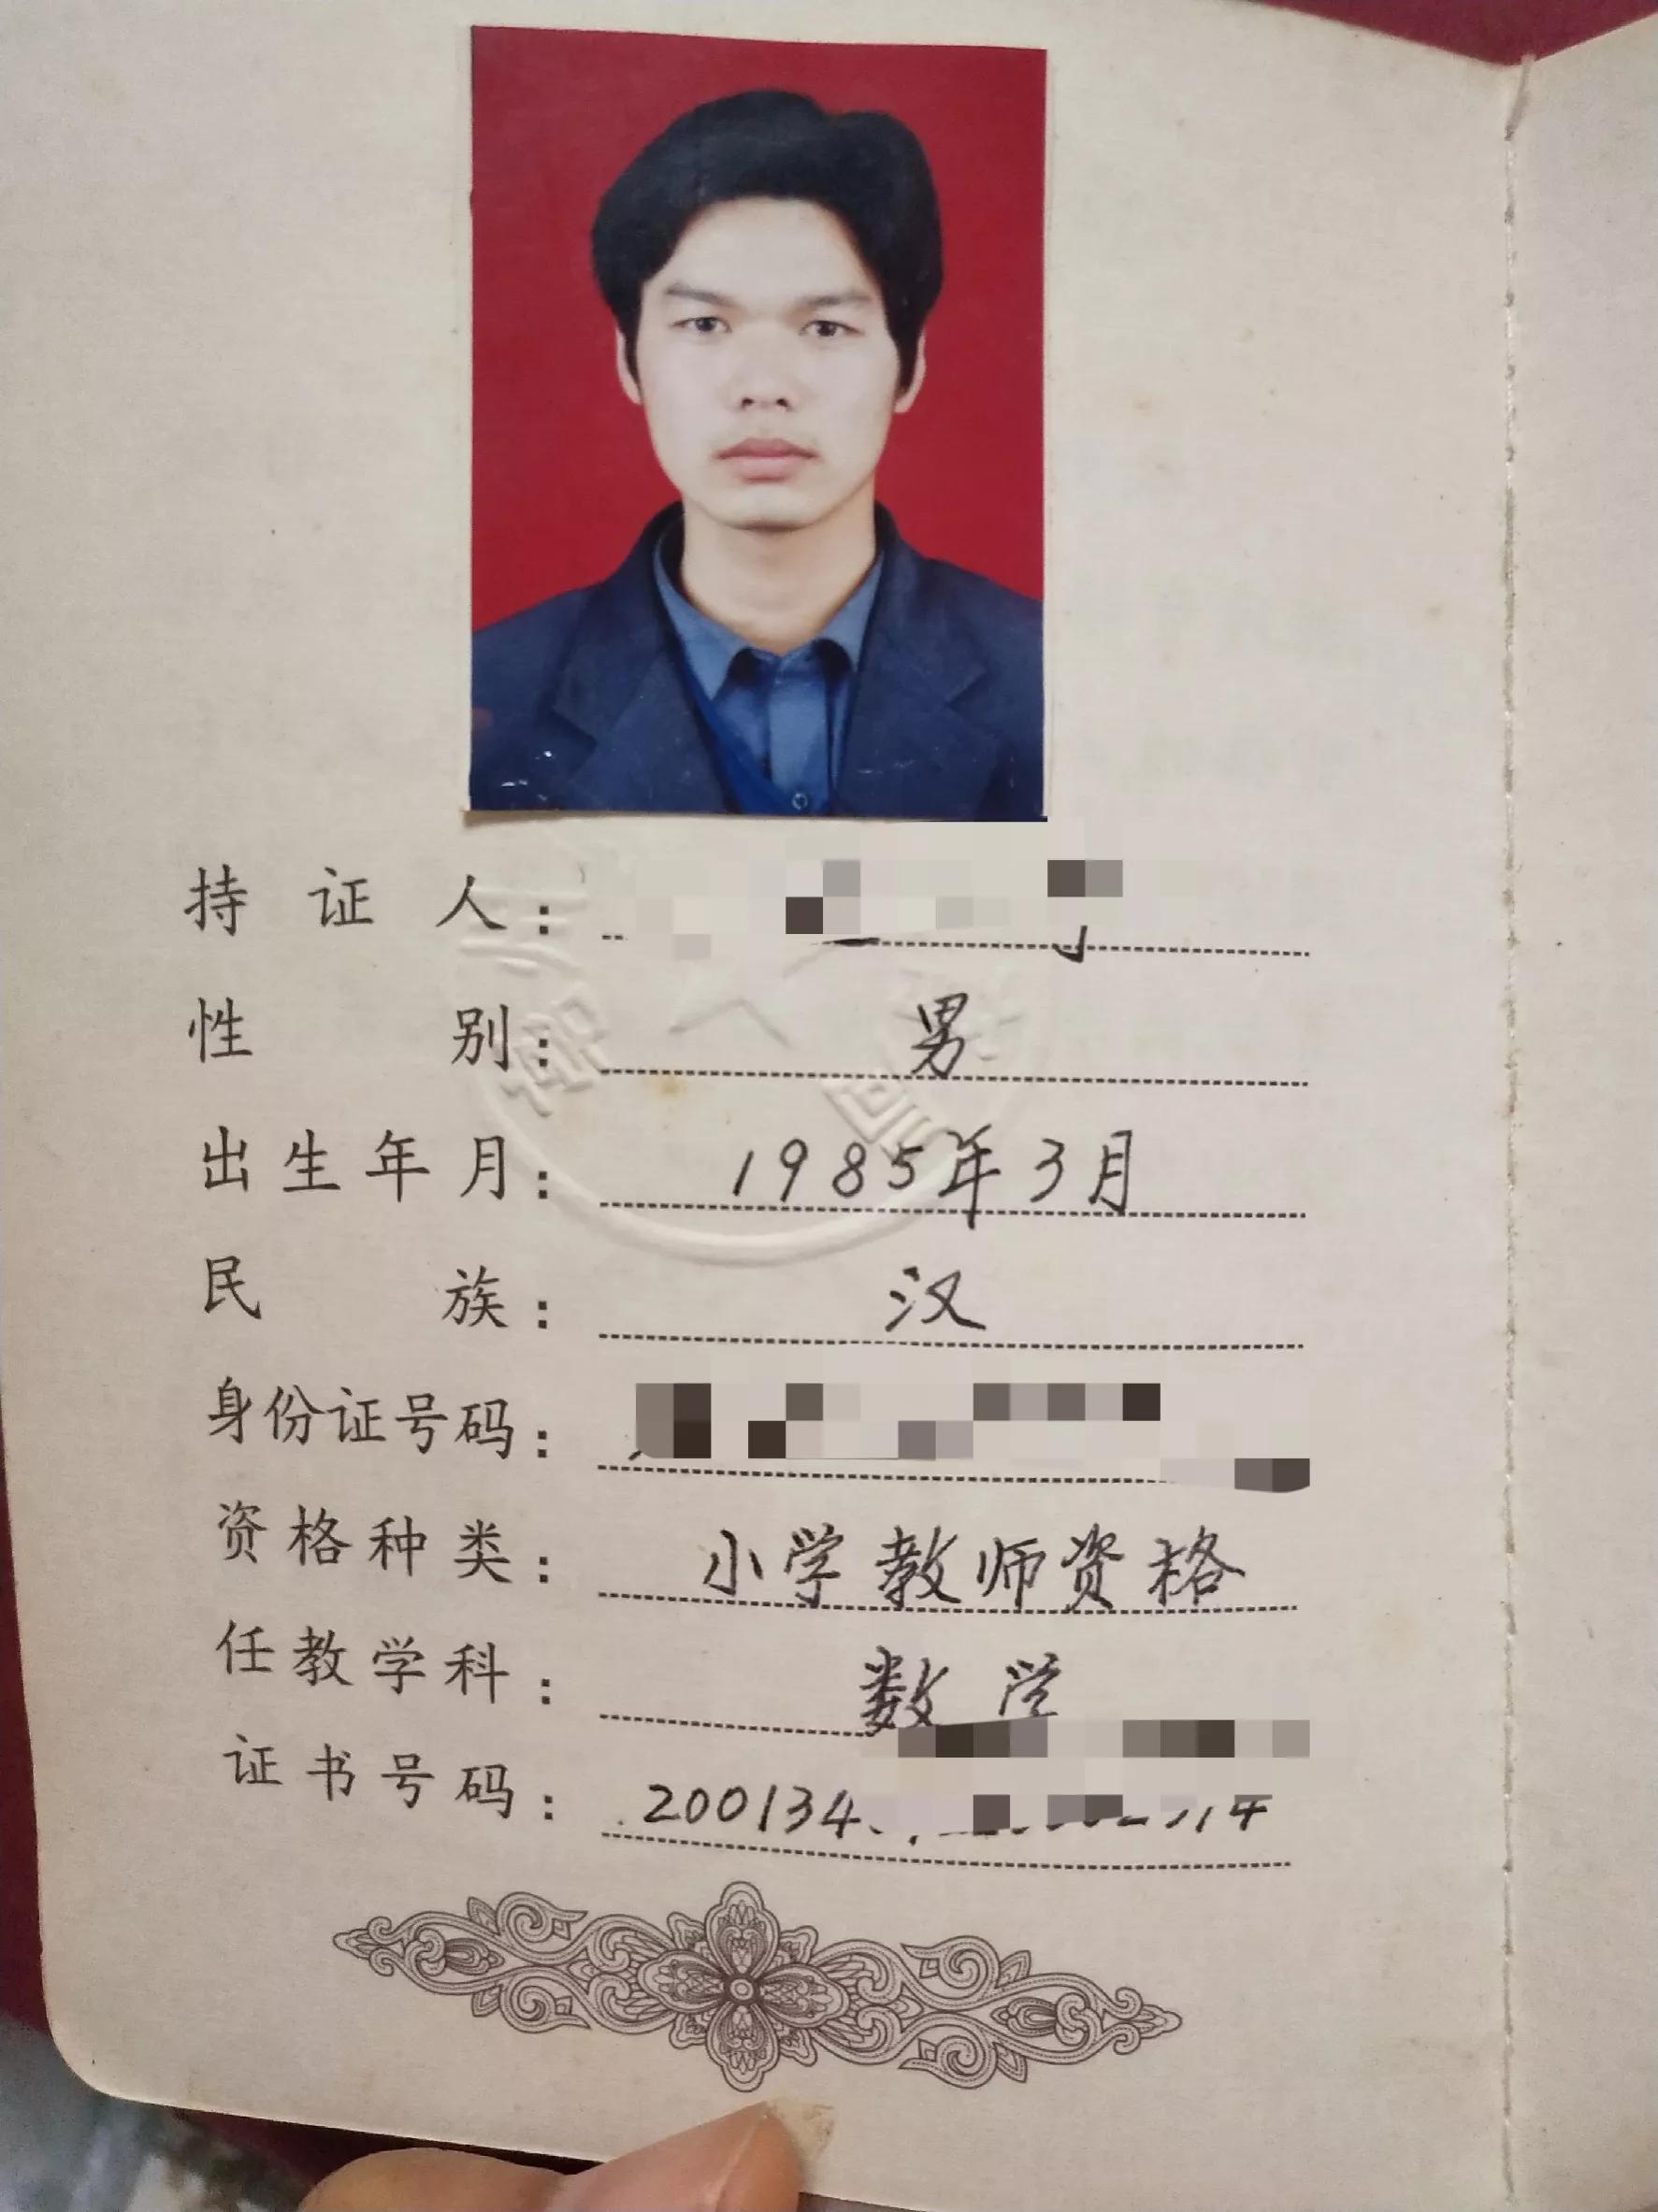 持证人：
性别：男
出生年月：1985年3月
民族：汉
身份证号码：
资格种类：小学教师资格
任教学科：数学
证书号码：200134